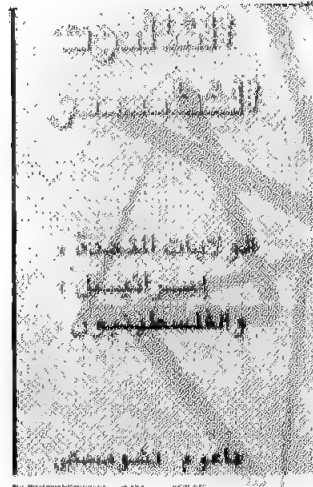 الثالوث
الولايات المتحدة ،
إسرائيل ،
والفلسطينيون
ناعوم تشومسكي